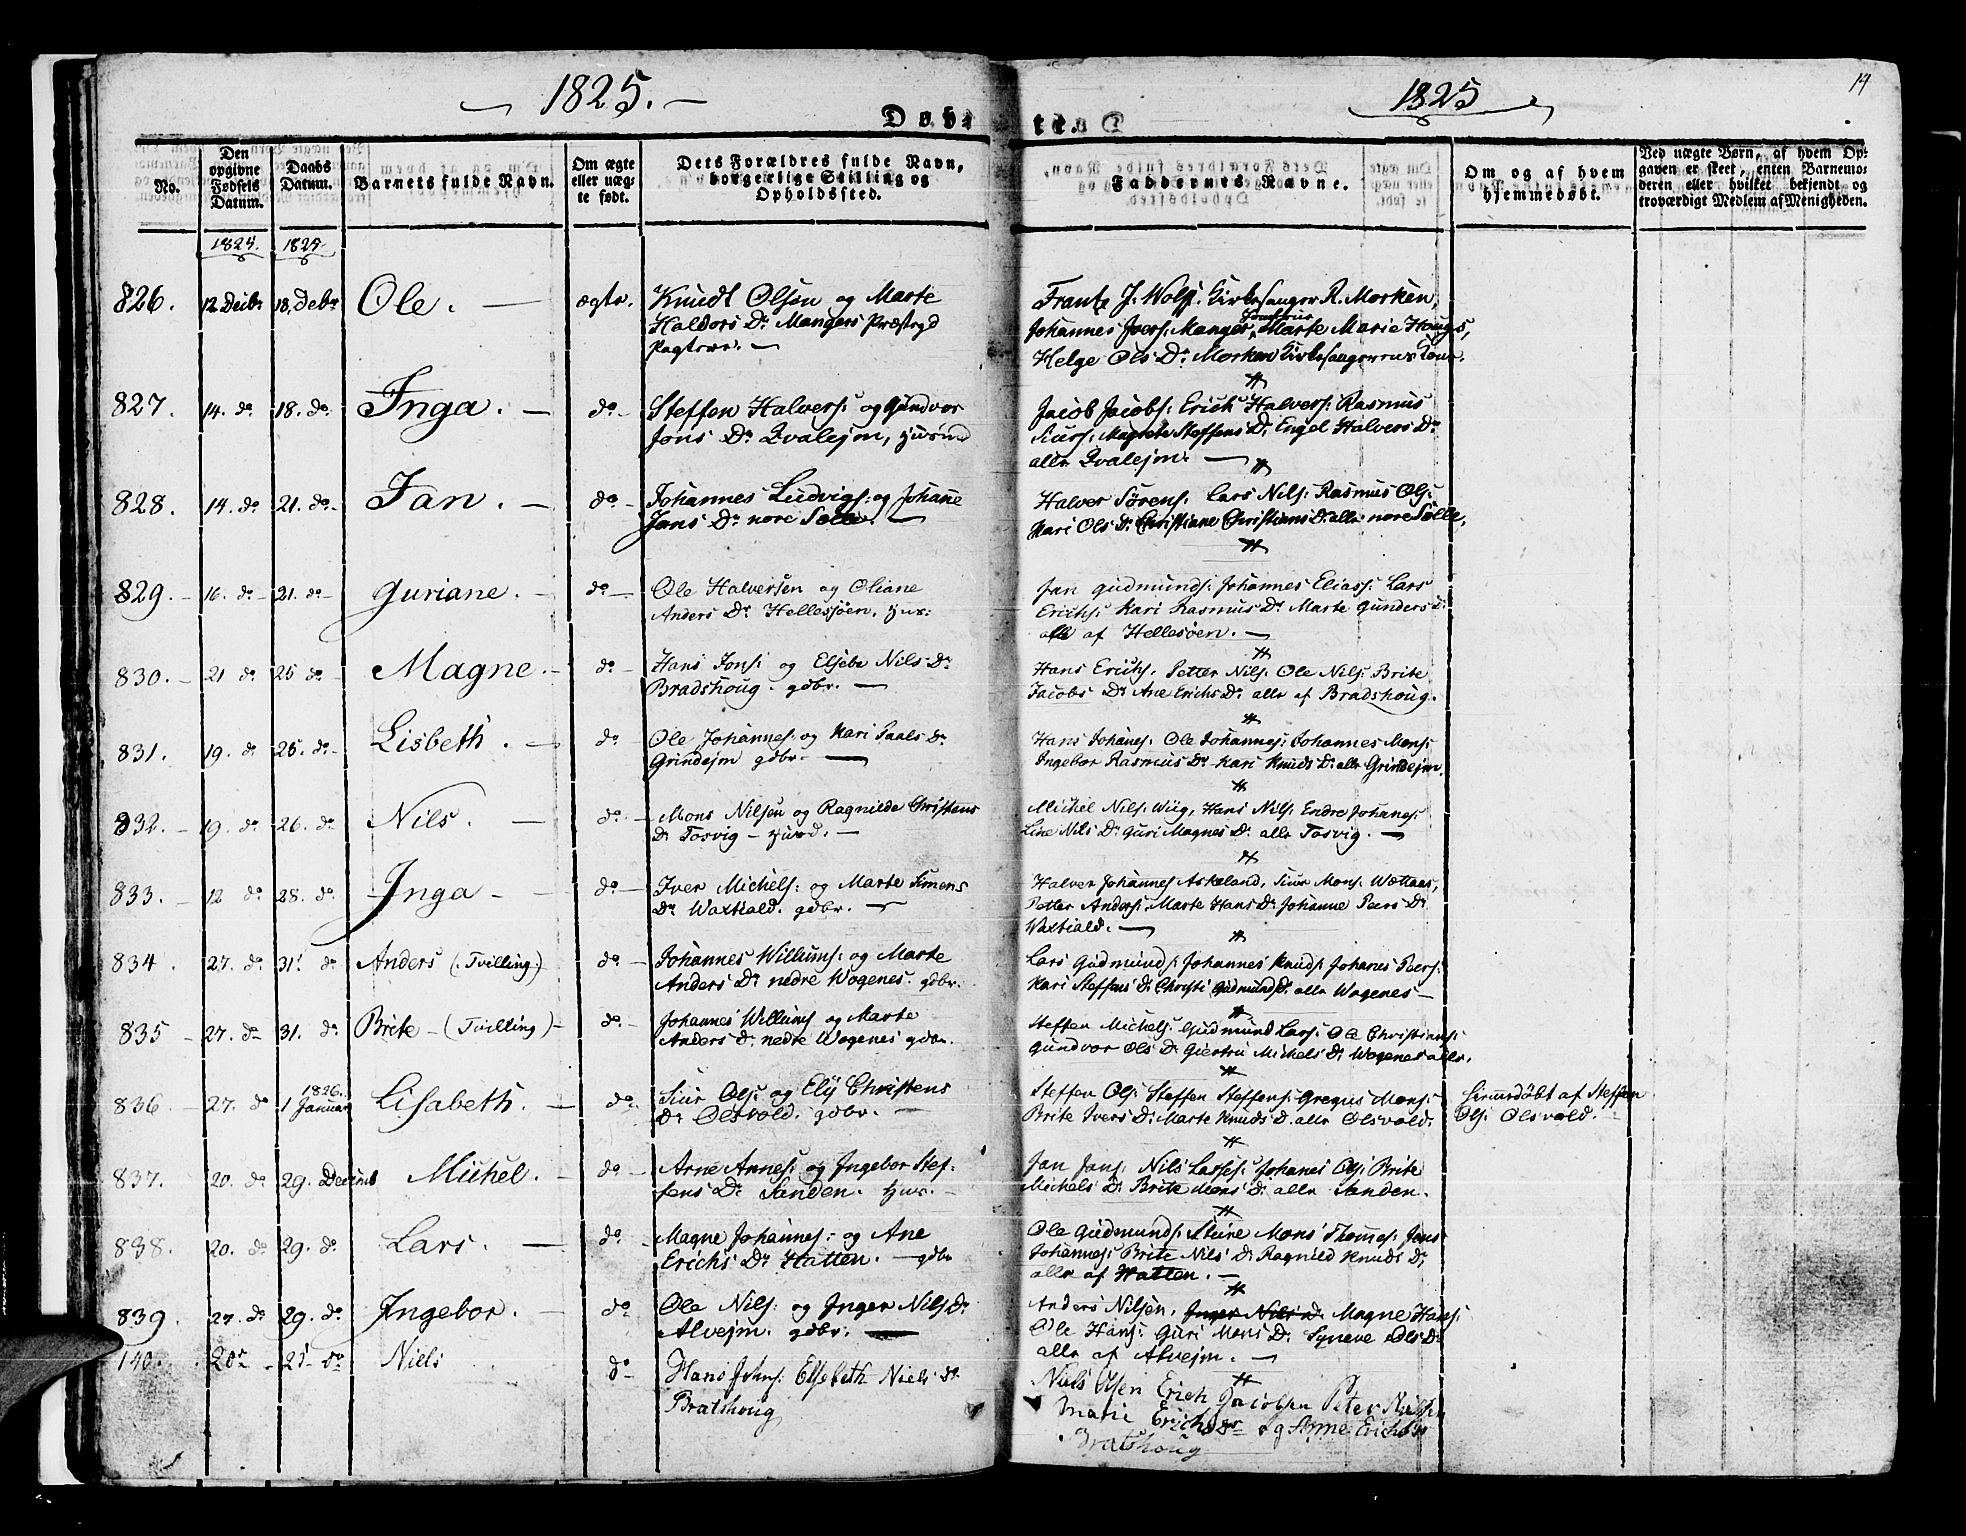 1825.
1825
14
Døbte
No.
Den opgivne Fødsels Datum.
Daabs Datum.
Barnets fulde Navn.
Om ægte eller uægte født.
Dets Forældres fulde Navn, borgerlige Stilling og Opholdssted.
Faddernes Navne.
Om og af hvem hjemmedøbt.
Ved uægte Børn, af hvem Opgaven er skeet, enten Barnemoderen eller hvilket bekjendt og troværdigt Medlem af Menigheden.
1825. 1825.
826. 12 Decbr 18. Debr Ole. — ægte. Knudt Olsøn og Marte
Haldors Dr Mangers Præstegd
Frantz J. Wolf. Kirkesanger R. Morken,
Johannes Joers: Manger, Marte Marie Hougs,
Helge Ols Dr Morken Kirkesangerens Kone.
827. 14. do 18. do Inga. — do — Steffen Halvers: og Gundvor
Jons Dr Qvalejm, Huusmd
Jacob Jacobs: Erich Halvers: Rasmus
Siurs: Magrete Steffens D. Engel Halvers Dr
alle Qvalejm. —
828. 14. do 21. do — Jan. — do — Johannes Ludvigs: og Johane
Jans Dr nore Sælle. —
Halver Sørens: Lars Nils: Rasmus Ols:
Kari Ols D. Christiane Christians D. alle nore Sælle.
829. — 16. do — 21. do — Guriane. — do — Ole Halversen og Oliane
Anders Dr Hellesøen. Hus:
Jan Gudmunds: Johannes Elias: Lars
Erichs: Kari Rasmus Dr Marte Gunders D.
alle af Hellesøen. —
830. — 21 do 25 do — Magne. — do — Hans Jons: og Elsebe Nils Dr
Bradshoug. gdbr. —
Hans Erichs. Petter Nils. Ole Nils: Brite
Jacobs Dr Ane Erichs Dr alle af Bradshoug.
831. 19. do 25. do — Lisbeth. — do Ole Johannes: og Kari Paals Dr
Grindejm gdbr. —
Hans Johanes. Ole Johannes: Johannes Mons:
Ingebor Rasmus Dr Kari Knuds D. alle Grindejm.
832. — 19. do 26. do Nils. — do — Mons Nilsen og Ragnilde Christens
Dr Tosvig — Huusd. —
Michel Nils: Wiig, Hans Nils. Endre Johanes:
Line Nils Dr Guri Magnes Dr alle Tosvig. —
833. — 12 do 28. do Inga — — do — Iver Michels: og Marte Simens
Dr Waxtiald. gdbr. —
Halver Johannes Askeland, Siur Mons: Wettaas,
Petter Anders: Marte Hans Dr Johanne Peers Dr
Waxtiald. —
834. 27. do 31. do Anders (: Tvilling) do — Johannes Willums: og Marte
Anders Dr nedre Wogenes. gdbr.
Lars Gudmunds: Johannes Knuds: Johanes Peers:
Kari Steffens D: Christi Gudmunds D. alle Wogenes —
835 — 27. do — 31. do Brite — (Tvilling) — do. — Johannes Willums og Marte
Anders D. nedre Wogenes gdbr.
Steffen Michels: Gudmund Lars: Ole Christians:
Gundvor Ols D. Giertru Michels D. Wogenes alle.
836 — 27. do 1826. 1 Januar Lisabeth. — do. Siur Ols: og Ely Christens
Dr Olsvold. gdbr. —
Steffen Ols: Steffen Steffens: Gregus Mons:
Brite Ivers D: Marte Knuds D. alle Olsvold.
Hiemmedøbt af Steffen
Ols: Olsvold. —
837. 20. do 29. Decemb Michel. — do — Arne Arnes: og Ingebor Stef-
fens Dr Sanden. Huus. —
Jan Jans: Nils Lasses: Johanes Ols: Brite
Michels D: Brite Mons D. alle Sanden.
838. 20. do 29. do Lars. — do — Magne Johannes: og Ane
Erichs Dr Hatten. — gdbr
Ole Gudmunds: Sture Mons Thomes: Jens
Johannes: Brite Nils D. Ragnild Knuds D,
alle af Hatten. —
839. 27. do 29. do Ingebor. — do Ole Nils: og Inger Nils Dr
Alvejm. gdbr. —
Anders Nilsen, Inger Nils D. Magne Hans:
Ole Hans: Guri Mons D: Syneve Ols Dr
alle af Alvejm. —
140. 20 — 25 — do Niels do Hans Johns: Elsebeth Niels Dr
Bratshoug
Niels Olsen Erich Jacobsen Peter Nielsen
Marie Erichsdr og Anne Erichsdr
Bratshoug